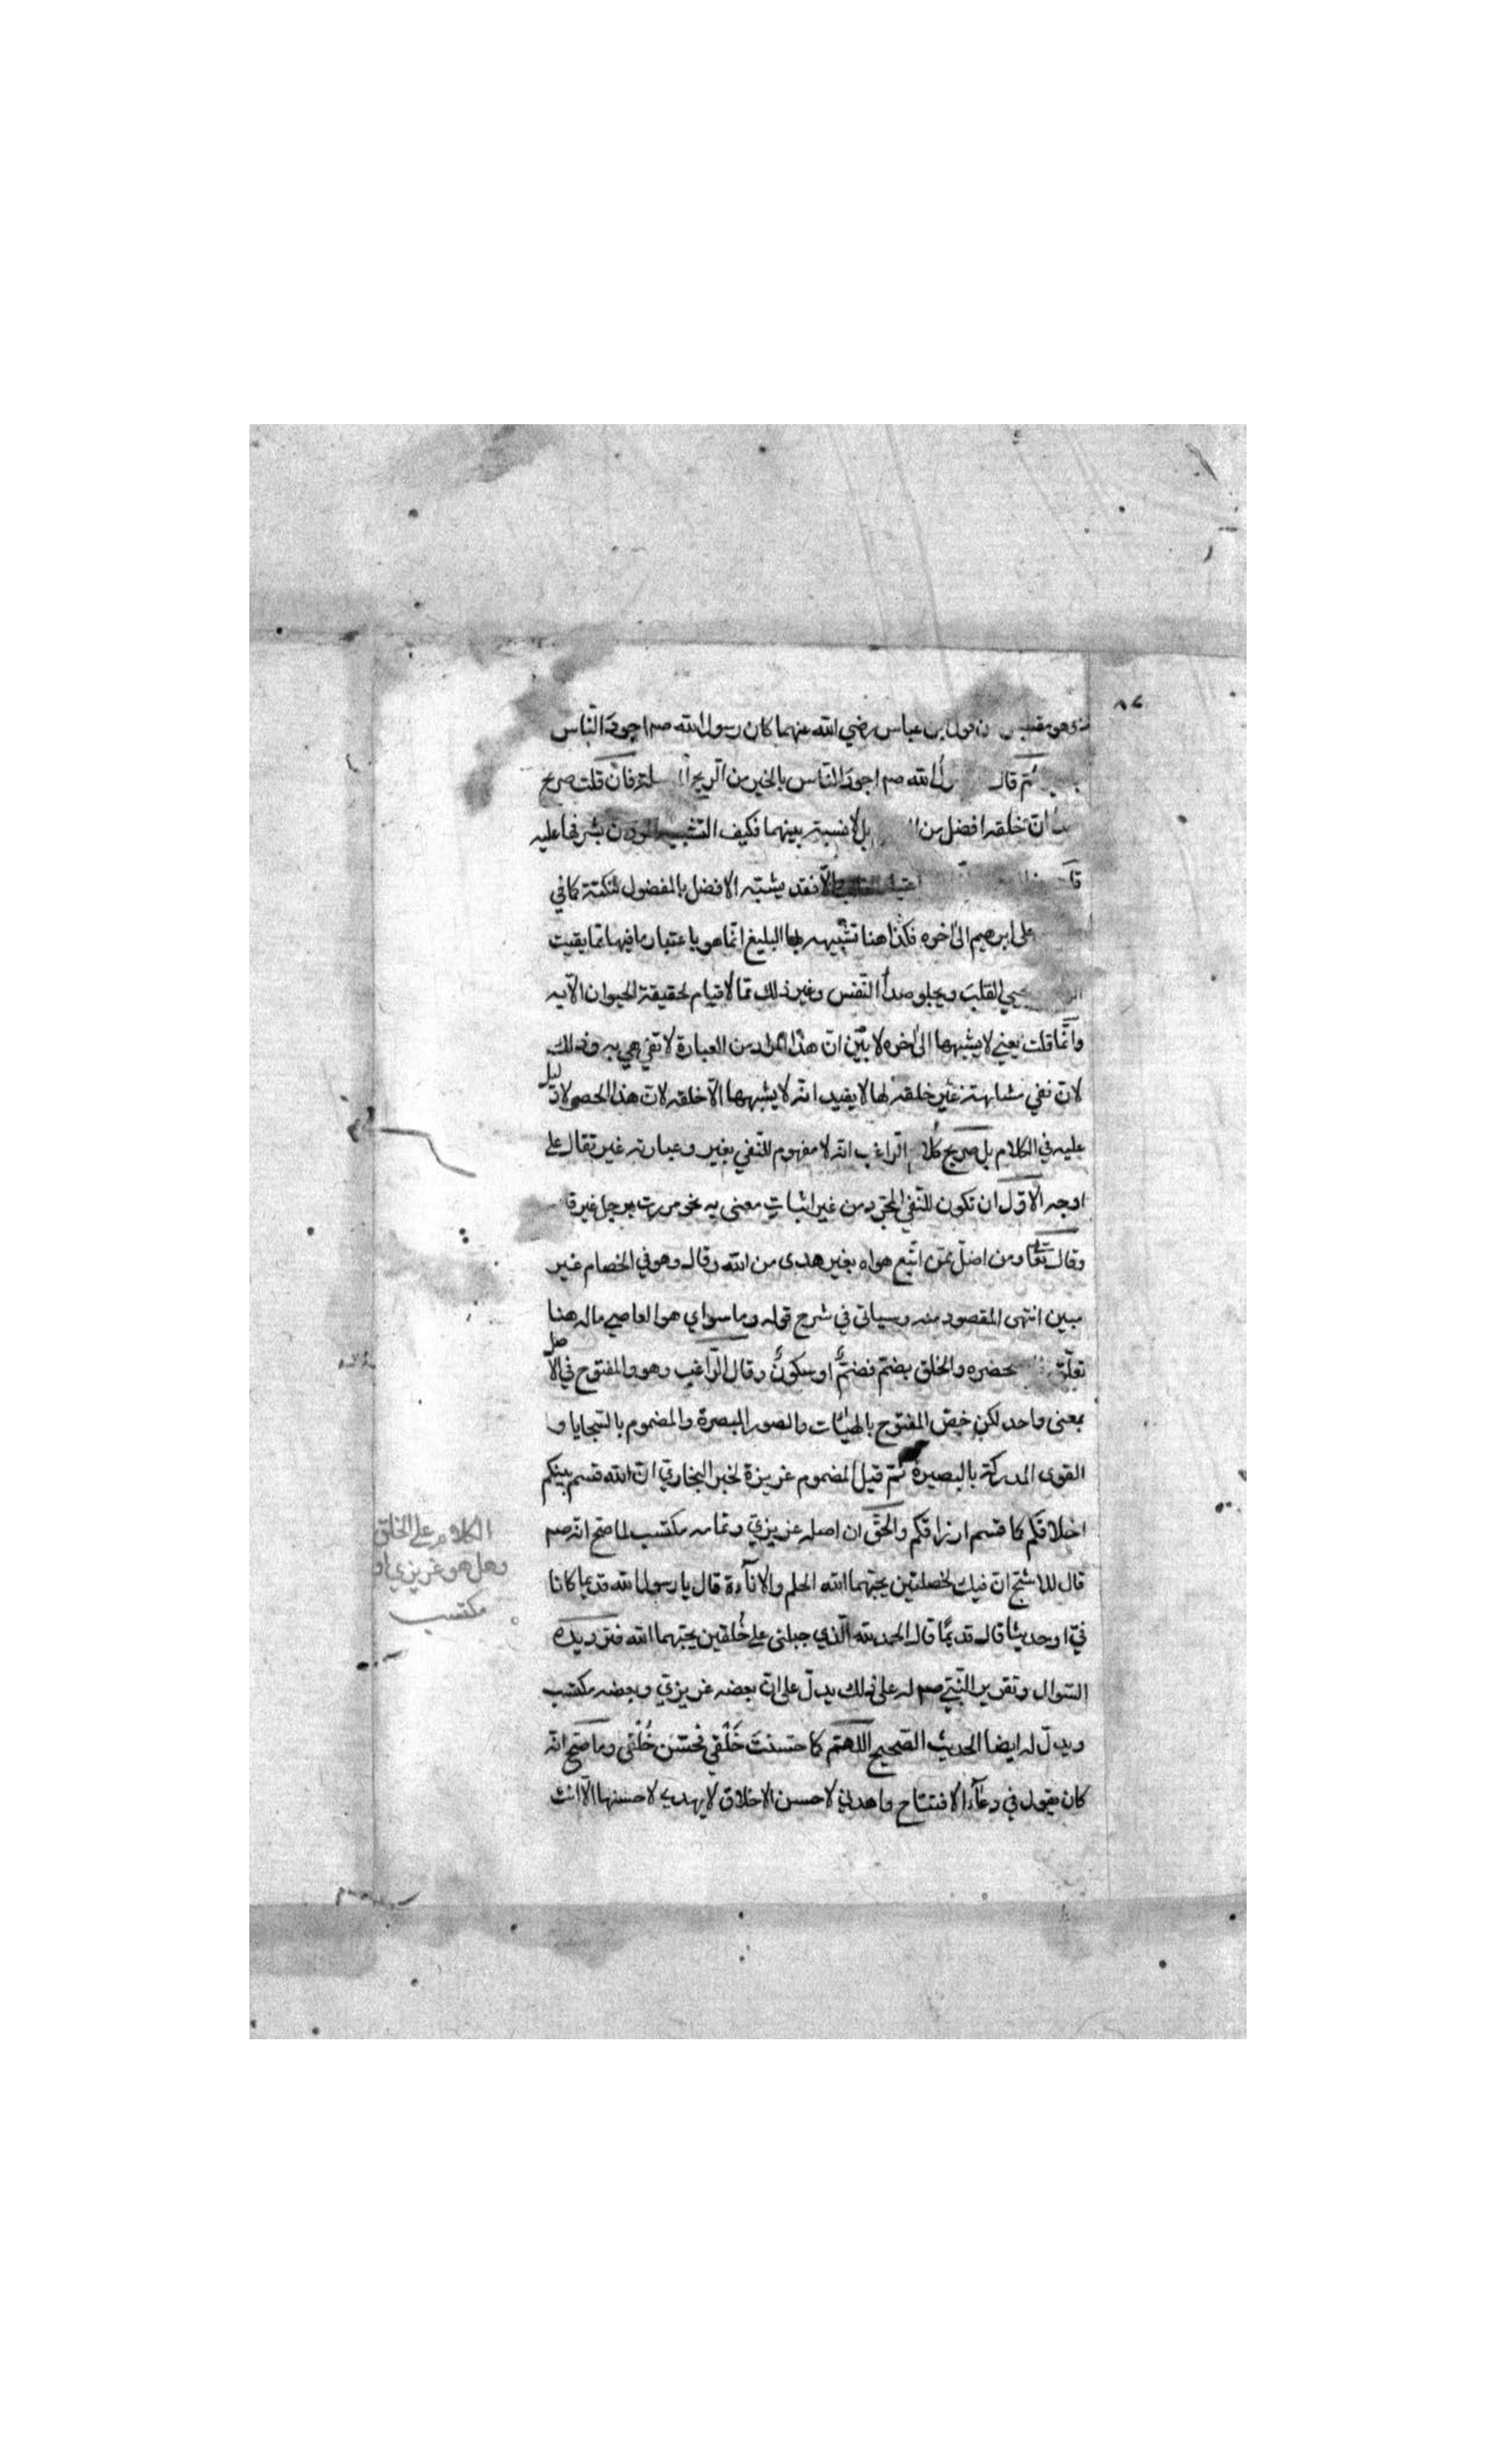 ٨٤
وهو مقتبس من قول ابن عباس رضي الله عنهما كان رسول الله صم اجود الناس
ثم قال الله صم اجود الناس بالخير من الريح فان قلت صريح
ان خلقه افضل من بل لا نسبة بينهما فكيف التشبيه بشرفها عليه
فقد يشبه الافضل بالمفضول لنكتة كما في
على ابرهيم الى اخره فكذا هنا تشبيهه بها البليغ انما هو باعتبار ما فيها مما يقيت
يحيي القلب ويجلو صدأ النفس وغير ذلك مما لا قيام لحقيقة الحيوان الا به
وانما قلت يعني لا يشبهها الى اخره لابين ان هذا المراد من العبارة لا تفي هي به وذلك
لان نفي مشابهة غير خلقه لها لا يفيد انه لا يشبهها الا خلقه لان هذا الحصر لا دليل
عليه في الكلام بل صريح كلام الراغب انه لا مفهوم للنفي بغير وعبارته غير تقال على
اوجه الاول ان تكون للنفي المجرد من غير اثبات معنى به نحو مررت برجل غير قا
وقال تعالى ومن اضل ممن اتبع هواه بغير هدى من الله وقال وهو في الخصام غير
مبين انتهى المقصود منه وسياتي في شرح قوله وما سواي هو العاصي ماله هنا
تعلق بحضره والخلق بضم فضم او سكون وقال الراغب وهو والمفتوح في الاصل
بمعنى واحد لكن خص المفتوح بالهيئات والصور المبصرة والمضموم بالسجايا و
القوى المدركة بالبصيرة ثم قيل المضموم غريزة لخبر البخاري ان الله قسم بينكم
اخلاقكم كما قسم ارزاقكم والحق ان اصله غريزي وتمامه مكتسب لما صح انه صم
قال للاشج ان فيك لخصلتين يحبهما الله الحلم والاناءة قال يا رسول الله قديما كانا
في او حديثا قال قديما قال الحمد لله الذي جبلني على خلقين يحبهما الله فترديده
السوال وتقرير النبي صم له على ذلك يدل على ان بعضه غريزي وبعضه مكتسب
ويدل له ايضا الحديث الصحيح اللهم كما حسنت خَلْقي فحسن خُلُقي وما صح انه
كان يقول في دعاء الافتتاح واهدني لاحسن الاخلاق لا يهدي لاحسنها الا انت
الكلام على الخلق
وهل هو غريزي او
مكتسب